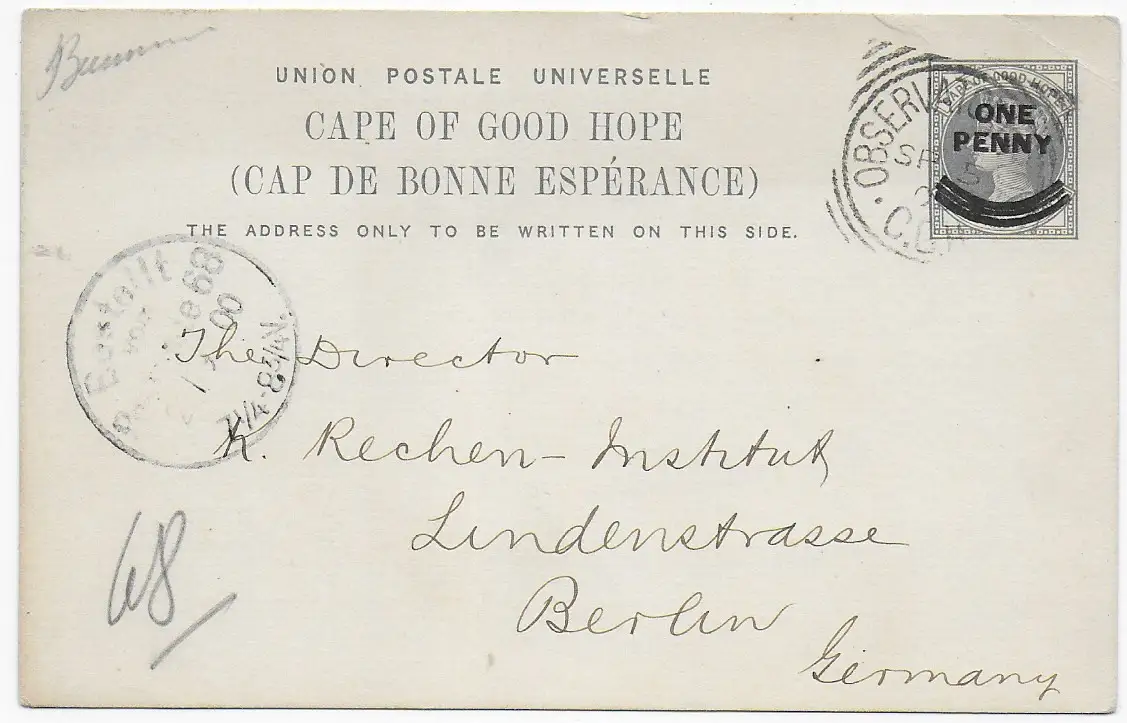 UNION POSTALE UNIVERSELLE
CAPE OF GOOD HOPE
(CAP DE BONNE ESPÉRANCE)
THE ADDRESS ONLY TO BE WRITTEN ON THIS SIDE.
CAPE OF GOOD HOPE
ONE
PENNY
C.G.H.
Bestellt
68
00
The Director
K. Rechen-Institut
Lindenstrasse
Berlin
Germany
68